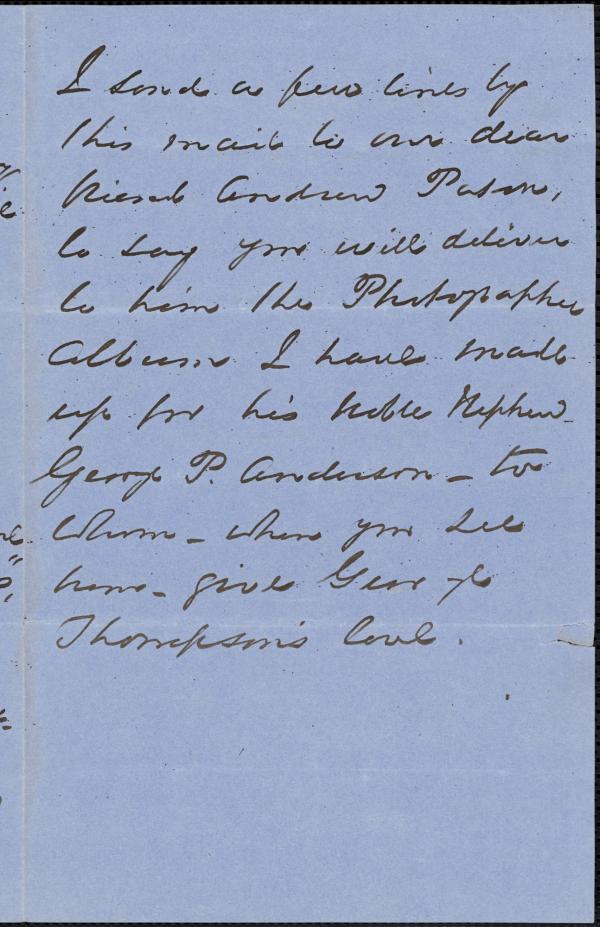 I send a few lines by
this mail to our dear
friend Andrew Paton,
to say you will deliver
to him the Photographic
Album I have made
up for his noble Nephew
George P. Anderson – to
whom – when you see
him – give George
Thompson's love.